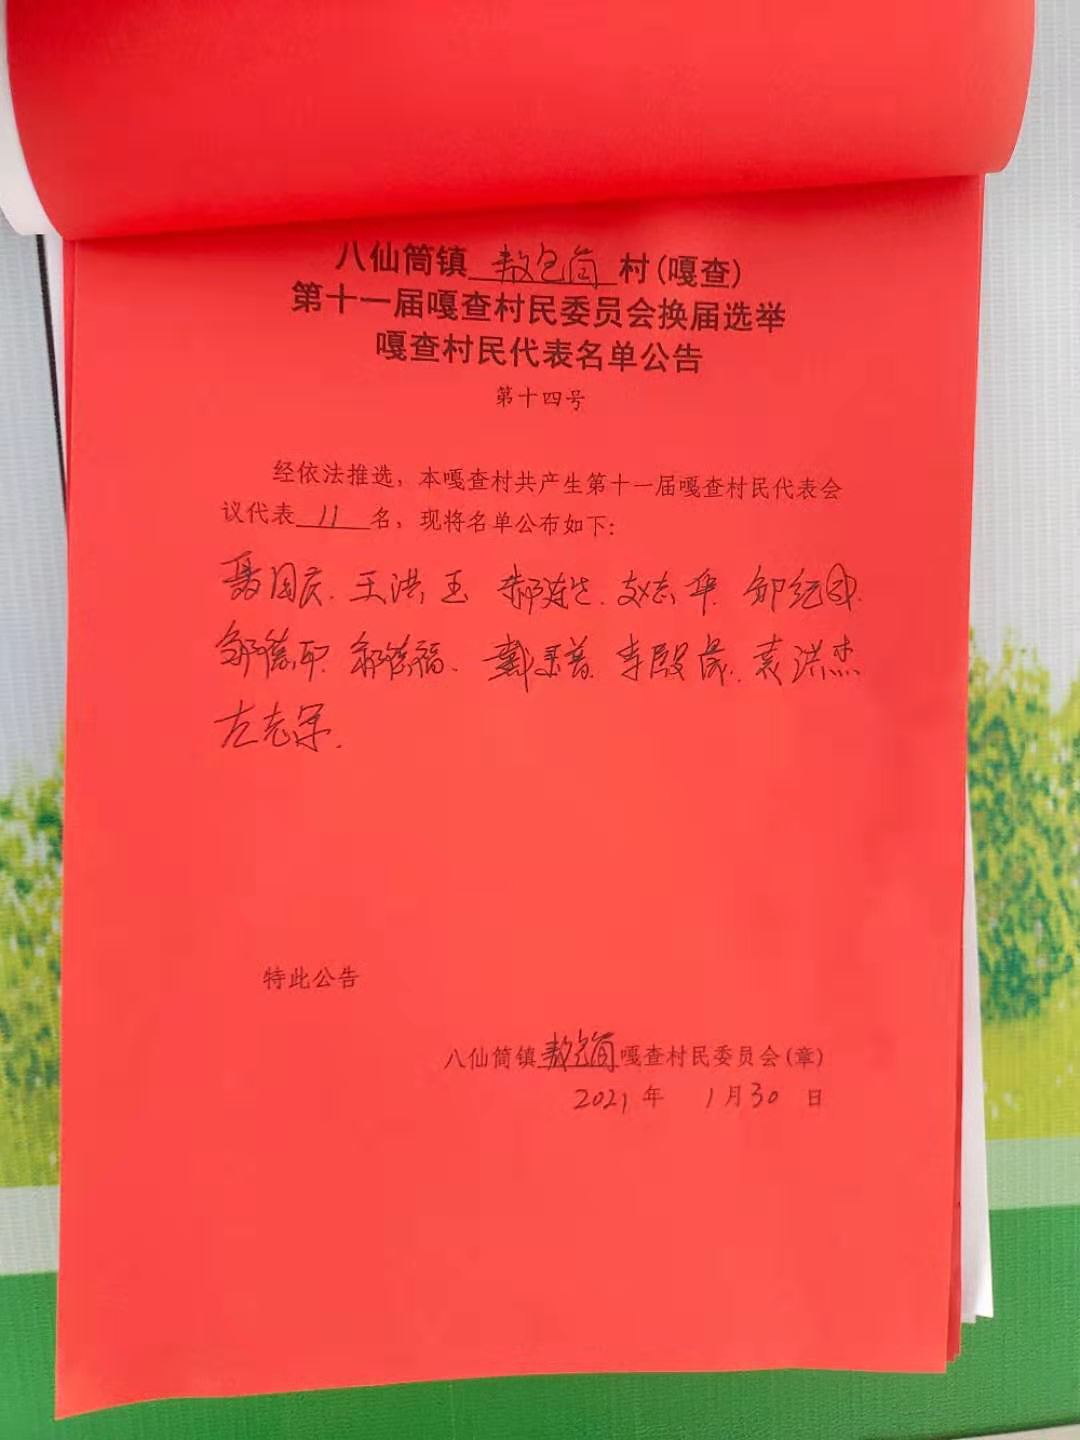 八仙筒镇 敖包筒 村(嘎查)
第十一届嘎查村民委员会换届选举
嘎查村民代表名单公告
第十四号
经依法推选，本嘎查村共产生第十一届嘎查村民代表会
议代表 11 名，现将名单公布如下：
聂国庆、王洪玉 郝连生、赵志华
邹德军 邹德福、袁洪杰
左志军.
特此公告
八仙筒镇敖包筒嘎查村民委员会(章)
2021年 1月30 日